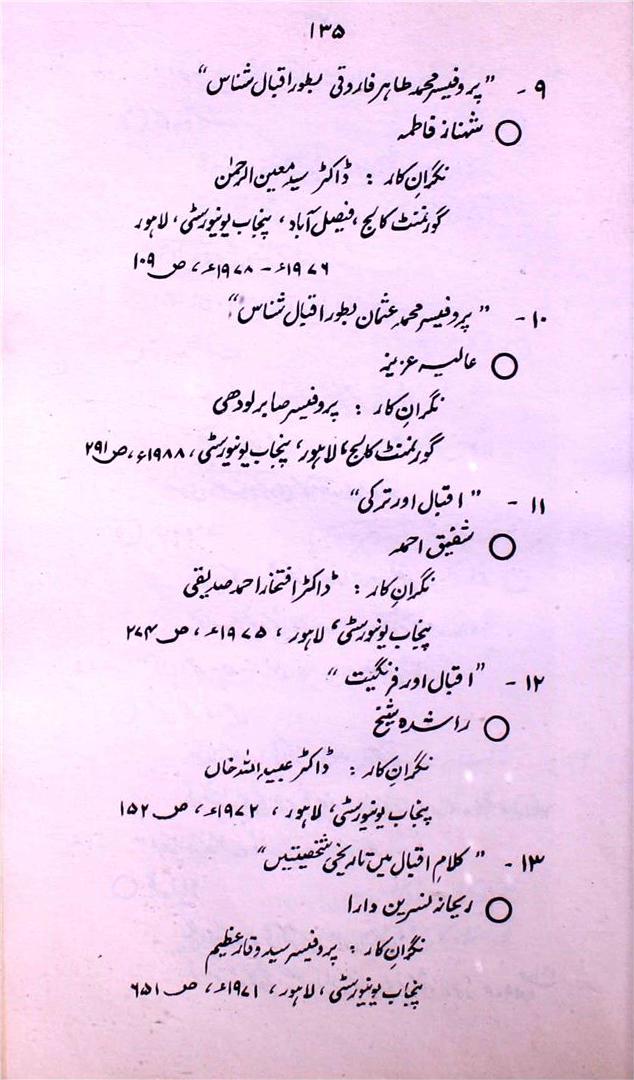 ۱۳۵
۹ - "پروفیسر محمد طاہر فاروقی بطور اقبال شناس"
○ شہناز فاطمہ
نگرانِ کار : ڈاکٹر سید معین الرحمٰن
گورنمنٹ کالج، فیصل آباد، پنجاب یونیورسٹی، لاہور
۱۹۷۶ء - ۱۹۷۸ء، ص ۱۰۹
۱۰ - "پروفیسر محمد عثمان بطور اقبال شناس"
○ عالیہ عزیز
نگرانِ کار : پروفیسر صابر لودھی
گورنمنٹ کالج، لاہور، پنجاب یونیورسٹی، ۱۹۸۸ء، ص ۲۹۱
۱۱ - "اقبال اور ترکی"
○ شفیق احمد
نگرانِ کار : ڈاکٹر افتخار احمد صدیقی
پنجاب یونیورسٹی، لاہور، ۱۹۷۵ء، ص ۲۷۴
۱۲ - "اقبال اور فرنگیت"
○ راشدہ شیخ
نگرانِ کار : ڈاکٹر عبید اللہ خاں
پنجاب یونیورسٹی، لاہور، ۱۹۷۲ء، ص ۱۵۲
۱۳ - "کلامِ اقبال میں تاریخی شخصیتیں"
○ ریحانہ نسرین دارا
نگرانِ کار : پروفیسر سید وقار عظیم
پنجاب یونیورسٹی، لاہور، ۱۹۷۱ء، ص ۶۵۱